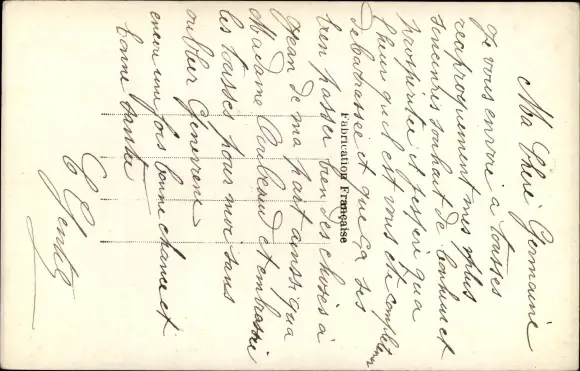 Ma Chère Germaine
Je vous envoie à toutes
réciproquement mes plus
sincères souhait de bonheur et
prospérité et j'espère qua
l'heur quil est vous ete completemen
debarassée et que ça ses
bien passer bien des choses à
Jean de ma part ainsi qua
Madame et embrassé
les tousses pour moi sans
oublier Genevieve
encore une fois bonne chance et
bonne santée
Fabrication Française